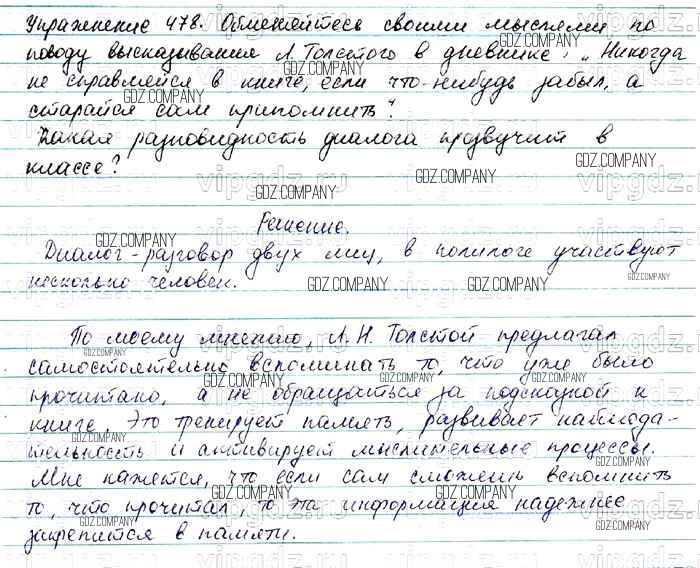 Упражнение 478. Обменяйтесь своими мыслями по
поводу высказывания Л. Толстого в дневнике: „Никогда
не справляйся в книге, если что-нибудь забыл, а
старайся сам припомнить".
Какая разновидность диалога прозвучит в
классе?
Решение.
Диалог - разговор двух лиц, в полилоге участвуют
несколько человек.
По моему мнению, Л. Н. Толстой предлагал
самостоятельно вспоминать то, что уже было
прочитано, а не обращаться за подсказкой к
книге. Это тренирует память, развивает наблюда-
тельность и активирует мыслительные процессы.
Мне кажется, что если сам сможешь вспомнить
то, что прочитал, то эта информация надежнее
закрепится в памяти.